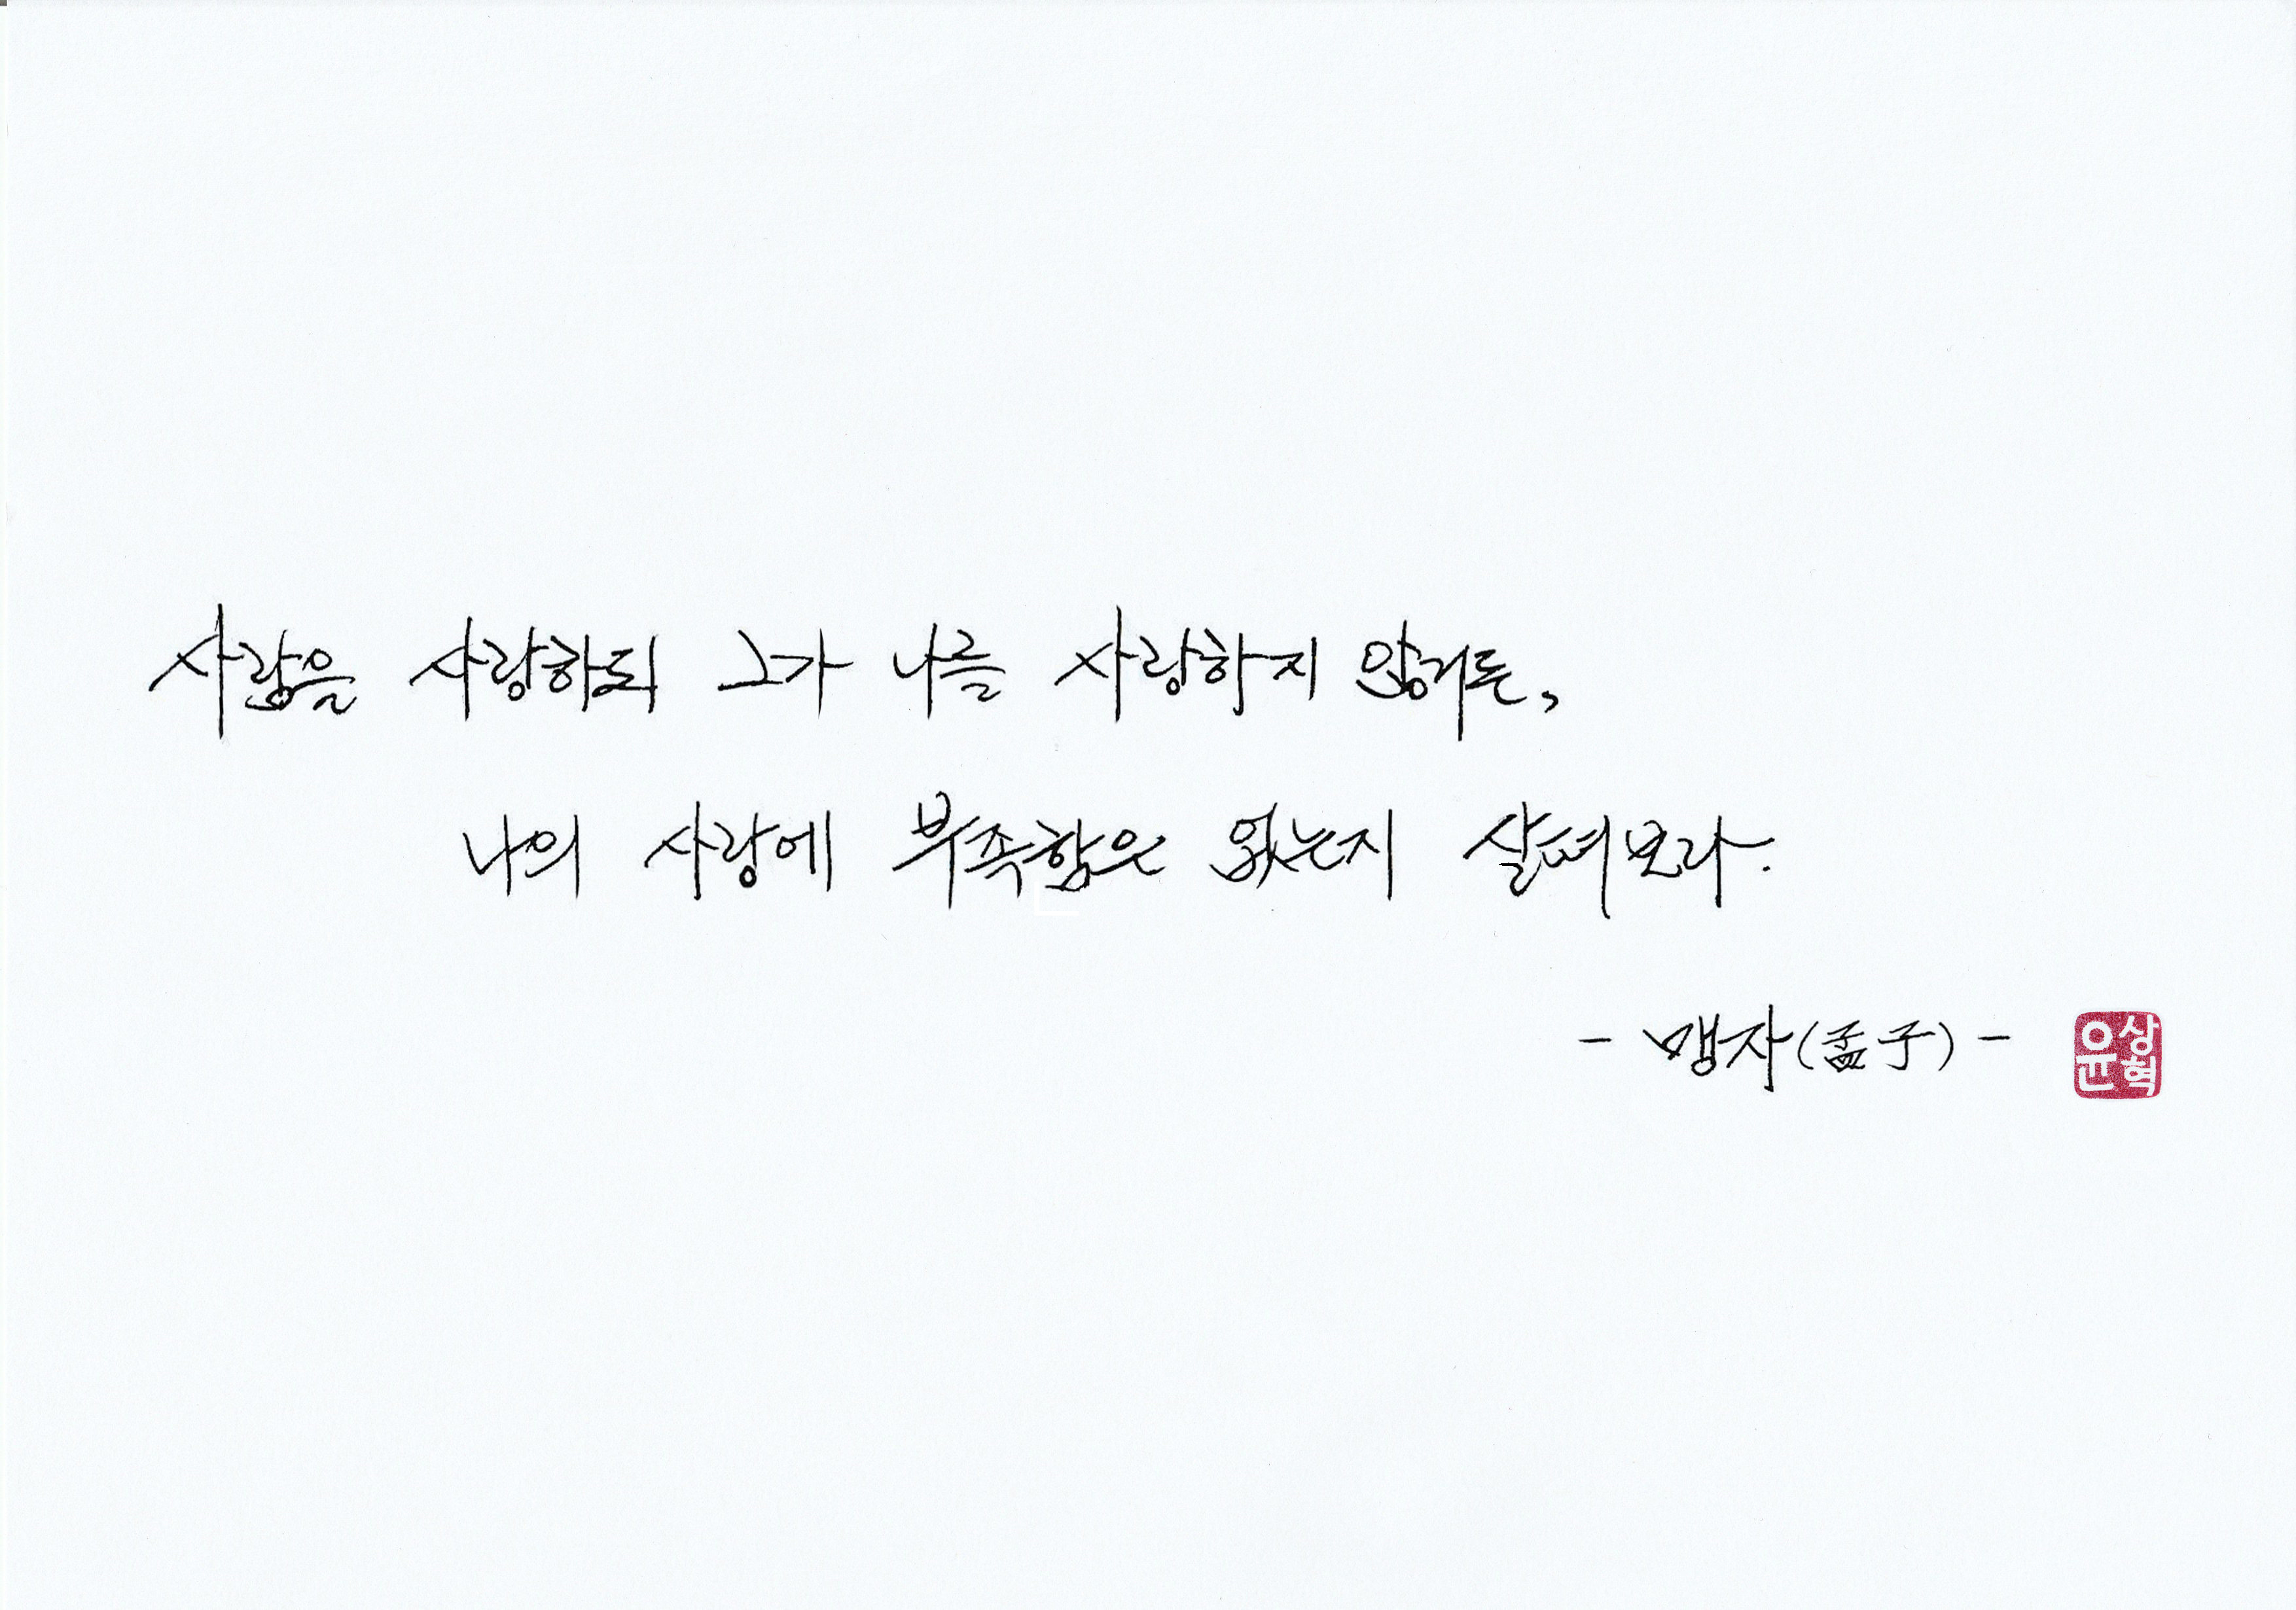 사람을 사랑하되 그가 나를 사랑하지 않거든,
나의 사랑에 부족함은 없는지 살펴보라.
- 맹자(孟子) -
윤상혁